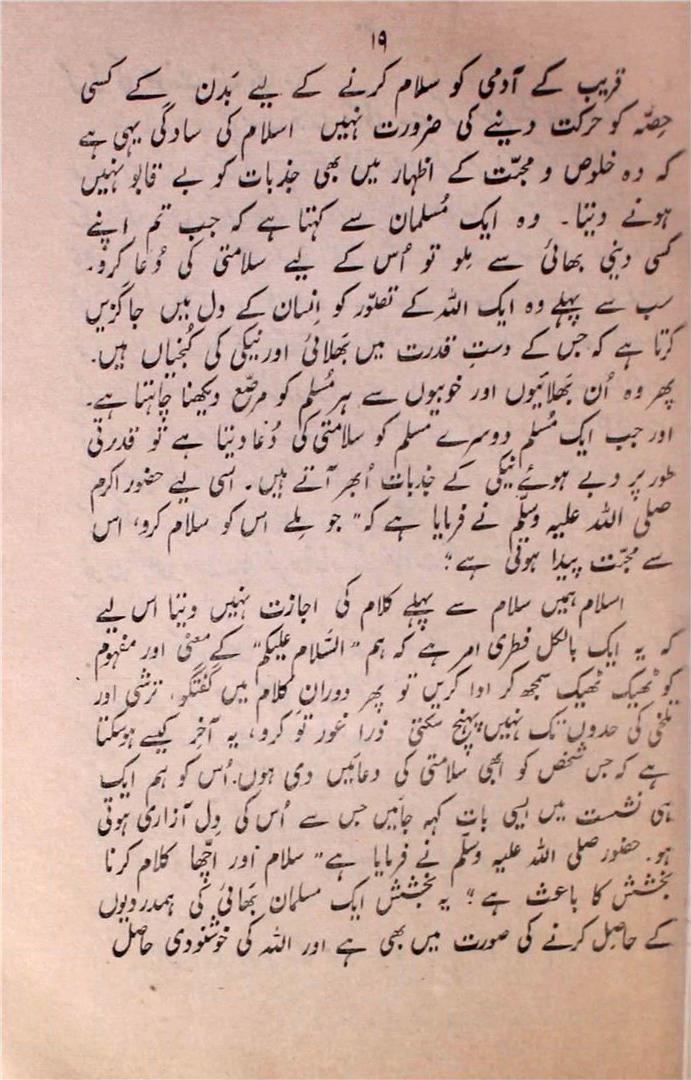 ۱۹
قریب کے آدمی کو سلام کرنے کے لیے بَدن کے کسی
حِصّہ کو حرکت دینے کی ضرورت نہیں اسلام کی سادگی یہی ہے
کہ وہ خلوص و محبّت کے اظہار میں بھی جذبات کو بے قابو نہیں
ہونے دیتا۔ وہ ایک مُسلمان سے کہتا ہے کہ جب تم اپنے
کسی دینی بھائی سے مِلو تو اُس کے لیے سلامتی کی دُعا کرو۔
سب سے پہلے وہ ایک اللہ کے تصوّر کو اِنسان کے دل میں جاگزیں
کرتا ہے کہ جس کے دستِ قدرت میں بَھلائی اور نیکی کی کُنجیاں ہیں۔
پھر وہ اُن بَھلائیوں اور خوبیوں سے ہر مُسلم کو مرصّع دیکھنا چاہتا ہے۔
اور جب ایک مُسلم دوسرے مسلم کو سلامتی کی دُعا دیتا ہے تو قدرتی
طور پر دبے ہوئے نیکی کے جذبات اُبھر آتے ہیں۔ اسی لیے حضور اکرم
صلی اللہ علیہ وسلّم نے فرمایا ہے کہ "جو مِلے اس کو سلام کرو، اس
سے محبّت پیدا ہوتی ہے"
اسلام ہمیں سلام سے پہلے کلام کی اجازت نہیں دیتا اس لیے
کہ یہ ایک بالکل فطری امر ہے کہ ہم "السّلام علیکم" کے معنٰی اور مفہوم
کو ٹھیک ٹھیک سمجھ کر ادا کریں تو پھر دورانِ کلام میں گفتگو، ترشی اور
تلخی کی حدوں تک نہیں پہنچ سکتی ذرا غور تو کرو، یہ آخر کیسے ہوسکتا
ہے کہ جس شخص کو ابھی سلامتی کی دعائیں دی ہوں۔ اُس کو ہم ایک
ہی نشست میں ایسی بات کہہ جائیں جس سے اُس کی دِل آزاری ہوتی
ہو۔ حضور صلی اللہ علیہ وسلّم نے فرمایا ہے "سلام اور اچّھا کلام کرنا
بخشش کا باعث ہے" یہ بخشش ایک مسلمان بَھائی کی ہمدردیوں
کے حاصِل کرنے کی صورت میں بھی ہے اور اللہ کی خوشنودی حاصل